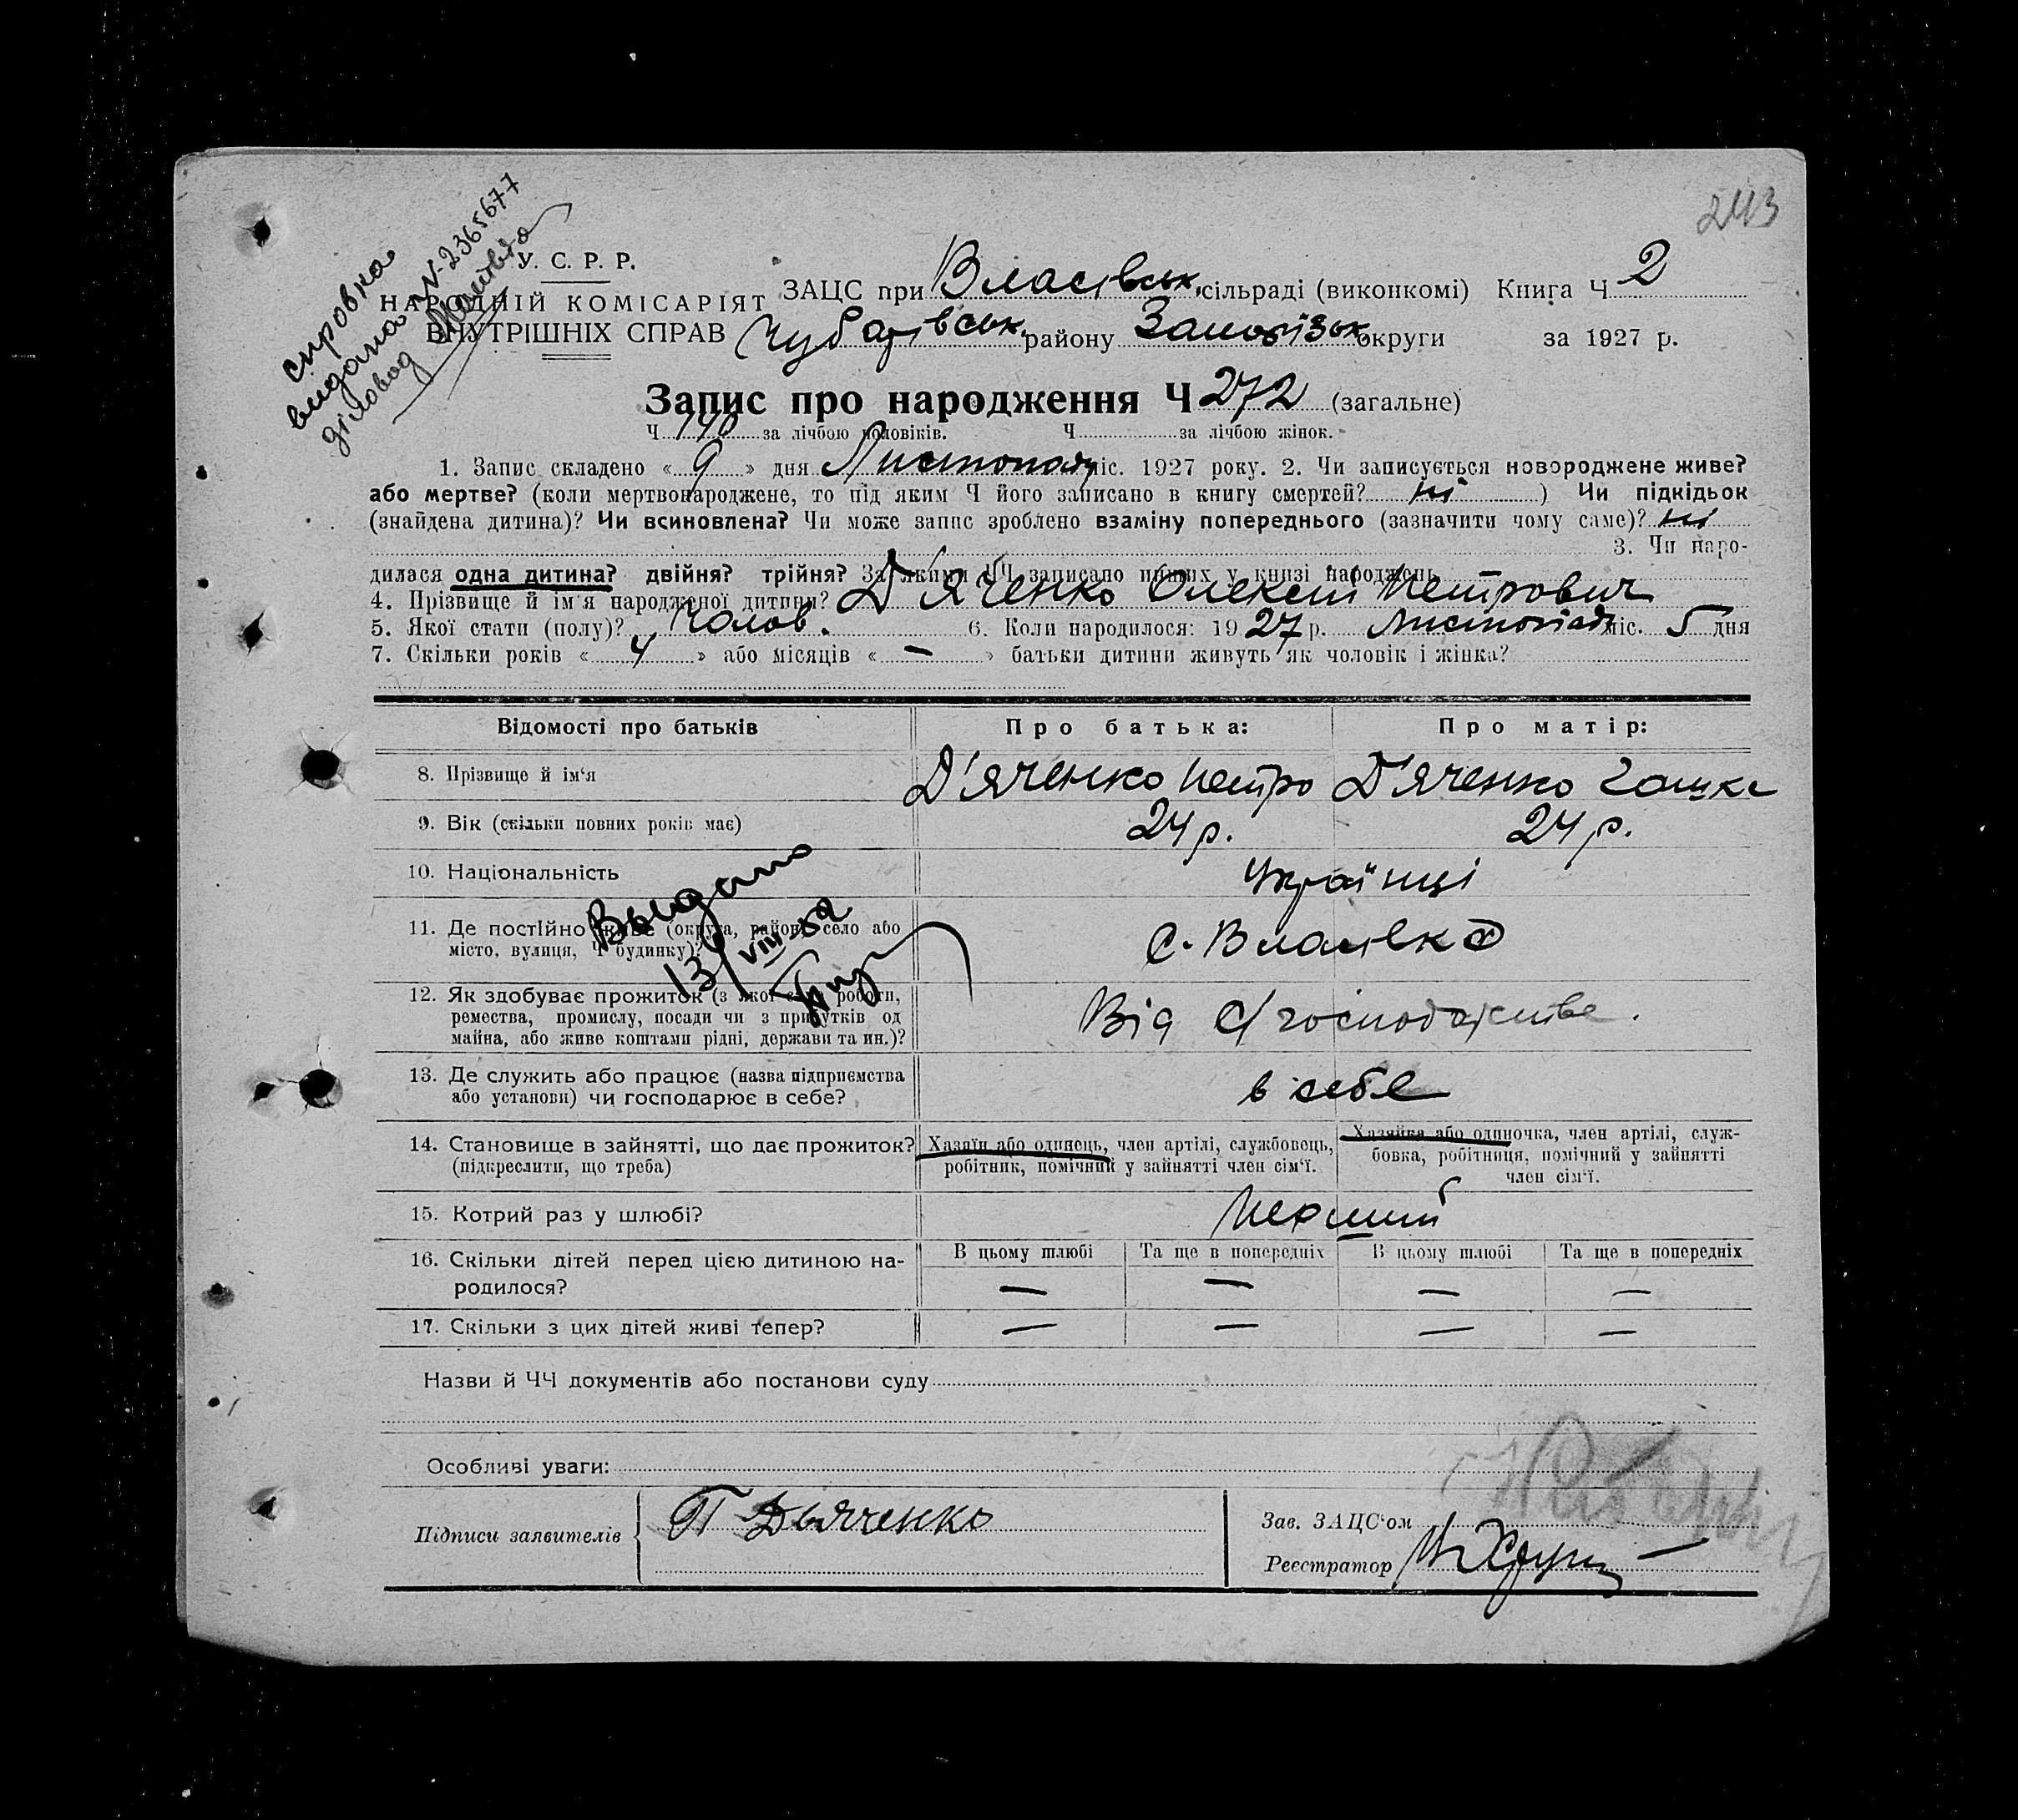 243
справка
видана N-2365677
діловод
У. С. Р. Р.
НАРОДНІЙ КОМІСАРІЯТ
ВНУТРІШНІХ СПРАВ
ЗАЦС при Власівськ. сільраді (виконкомі) Книга Ч 2
Чубарівськ. району Запорізьк. округи за 1927 р.
Запис про народження Ч 272 (загальне)
Ч 140 за лічбою чоловіків. Ч за лічбою жінок.
1. Запис складено « 9 » дня Листопаду міс. 1927 року. 2. Чи записується новороджене живе?
або мертве? (коли мертвонароджене, то під яким Ч його записано в книгу смертей? ні ) Чи підкідьок
(знайдена дитина)? Чи всиновлена? Чи може запис зроблено взаміну попереднього (зазначити чому саме)? ні
3. Чи наро-
дилася одна дитина? двійня? трійня? За якими ЧЧ записано инших у книзі народжень
4. Прізвище й ім'я народженої дитини? Д'яченко Олексій Петрович
5. Якої стати (полу)? Чолов. 6. Коли народилося: 1927 р. Листопад міс. 5 дня
7. Скільки років « 4 » або місяців « — » батьки дитини живуть як чоловік і жінка?
Відомості про батьків Про батька: Про матір:
8. Прізвище й ім'я Д'яченко Петро Д'яченко Гашка
9. Вік (скільки повних років має) 24 р. 24 р.
10. Національність Українці
11. Де постійно живе (округа, район, село або
місто, вулиця, Ч будинку)? с. Власівка
Выдано
13/VIII-52
12. Як здобуває прожиток (з якої саме роботи,
ремества, промислу, посади чи з прибутків од
майна, або живе коштами рідні, держави та ин.)? Від с/господарства.
13. Де служить або працює (назва підприємства
або установи) чи господарює в себе? в себе
14. Становище в зайнятті, що дає прожиток?
(підкреслити, що треба)
Хазяїн або одинець, член артілі, службовець,
робітник, помічний у зайнятті член сім'ї.
Хазяйка або одиночка, член артілі, служ-
бовка, робітниця, помічний у зайнятті
член сім'ї.
15. Котрий раз у шлюбі? Перший
16. Скільки дітей перед цією дитиною на-
родилося?
В цьому шлюбі Та ще в попередніх В цьому шлюбі Та ще в попередніх
— — — —
17. Скільки з цих дітей живі тепер? — — — —
Назви й ЧЧ документів або постанови суду
Особливі уваги:
Підписи заявителів П Дьяченко
Зав. ЗАЦС'ом
Реєстратор